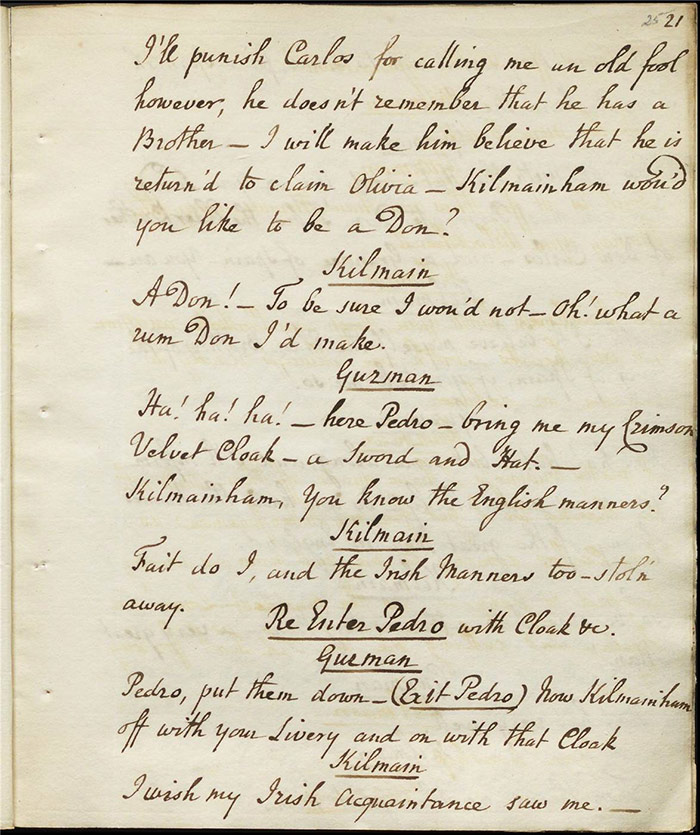 25 21
I'll punish Carlos for calling me an old fool
however, he doesn't remember that he has a
Brother – I will make him believe that he is
return'd to claim Olivia – Kilmainham wou'd
you like to be a Don?
Kilmain
A Don! – To be sure I wou'd not – Oh! what a
rum Don I'd make.
Guzman
Ha! ha! ha! – here Pedro – bring me my Crimson
Velvet Cloak – a Sword and Hat. –
Kilmainham, You know the English manners?
Kilmain
Fait do I, and the Irish Manners too – stol'n
away.
Re Enter Pedro with Cloak &c.
Guzman
Pedro, put them down – (Exit Pedro) Now Kilmainham
off with your Livery and on with that Cloak
Kilmain
I wish my Irish Acquaintance saw me. –